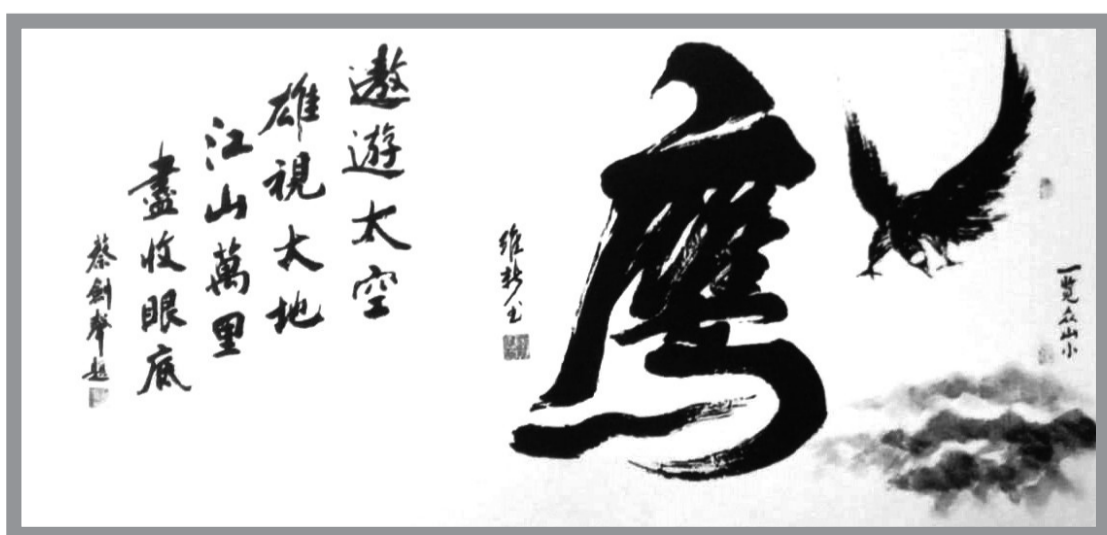 一覧众山小
鹰
維新书
遨遊太空
雄視大地
江山萬里
盡收眼底
蔡劍聲題